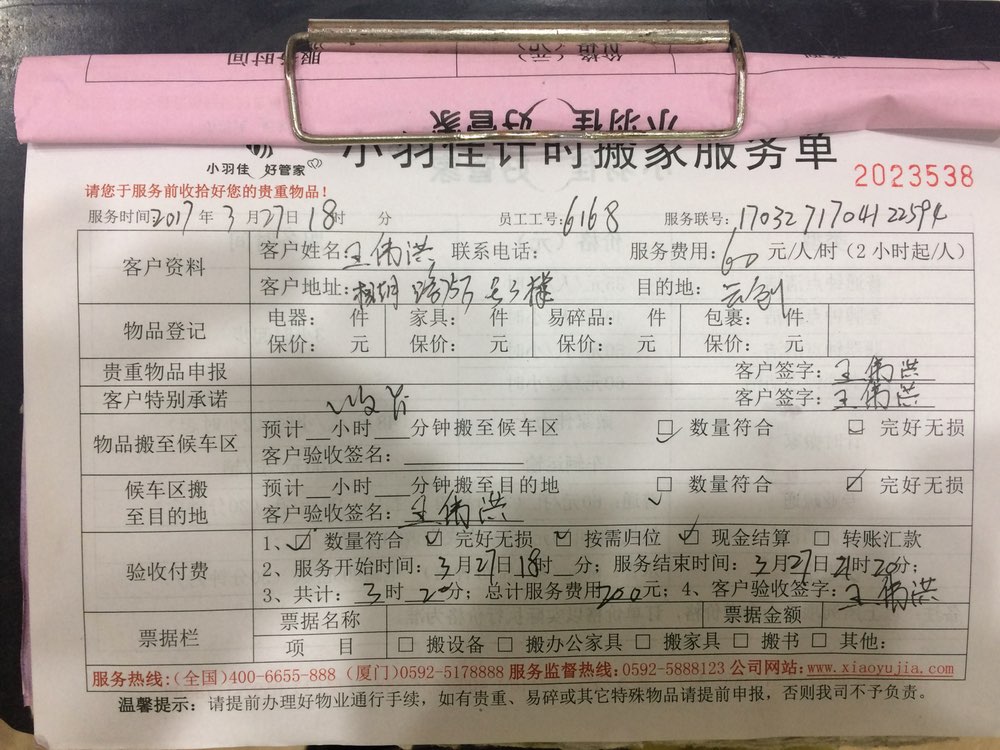 服务时间 价格（元）
小羽佳 好管家
小羽佳 好管家 小羽佳计时搬家服务单
2023538
请您于服务前收拾好您的贵重物品！
服务时间：2017年3月27日18时 分 员工工号：6168 服务联号：17032717041 22594
客户资料 客户姓名：王伟洪 联系电话： 服务费用：60元/人/时（2小时起/人）
客户地址： 目的地：
物品登记 电器： 件 家具： 件 易碎品： 件 包裹： 件
保价： 元 保价： 元 保价： 元 保价： 元
贵重物品申报 客户签字：王伟洪
客户特别承诺 客户签字：王伟洪
物品搬至候车区 预计__小时___分钟搬至候车区 ☑ 数量符合 □ 完好无损
客户验收签名：
候车区搬至目的地 预计__小时___分钟搬至目的地 □ 数量符合 ☑ 完好无损
客户验收签名：王伟洪
验收付费 1、☑ 数量符合 ☑ 完好无损 ☑ 按需归位 ☑ 现金结算 □ 转账汇款
2、服务开始时间：3月27日18时__分；服务结束时间：3月27日21时20分；
3、共计：3时20分；总计服务费用200元；4、客户验收签字：王伟洪
票据栏 票据名称 票据金额
项 目 □ 搬设备 □ 搬办公家具 □ 搬家具 □ 搬书 □ 其他：
服务热线：（全国）400-6655-888 （厦门）0592-5178888 服务监督热线：0592-5888123 公司网站：www.xiaoyujia.com
温馨提示：请提前办理好物业通行手续，如有贵重、易碎或其它特殊物品请提前申报，否则我司不予负责。